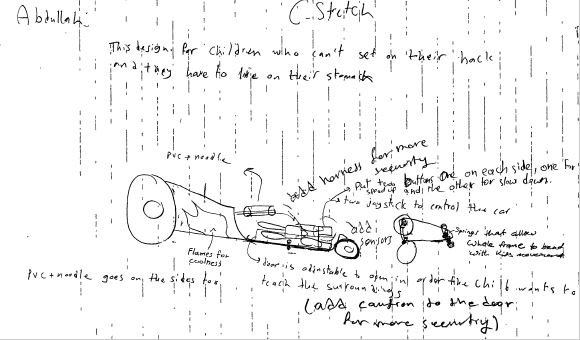 Abdullah
C-Sketch
This design for children who can't set on their back
and they have to lie on their stomach
PVC + noodle
add harness for more
security
Put two buttons one on each side, one for
speed up and the other for slow down.
two Joystick to control the car
add
sensors
Springs that allow
whole frame to bend
with kids movement
Flames for
coolness
door is adjustable to open in order the child wants to
teach the surroundings
PVC + noodle goes on the sides too
(add caution to the door
for more security)